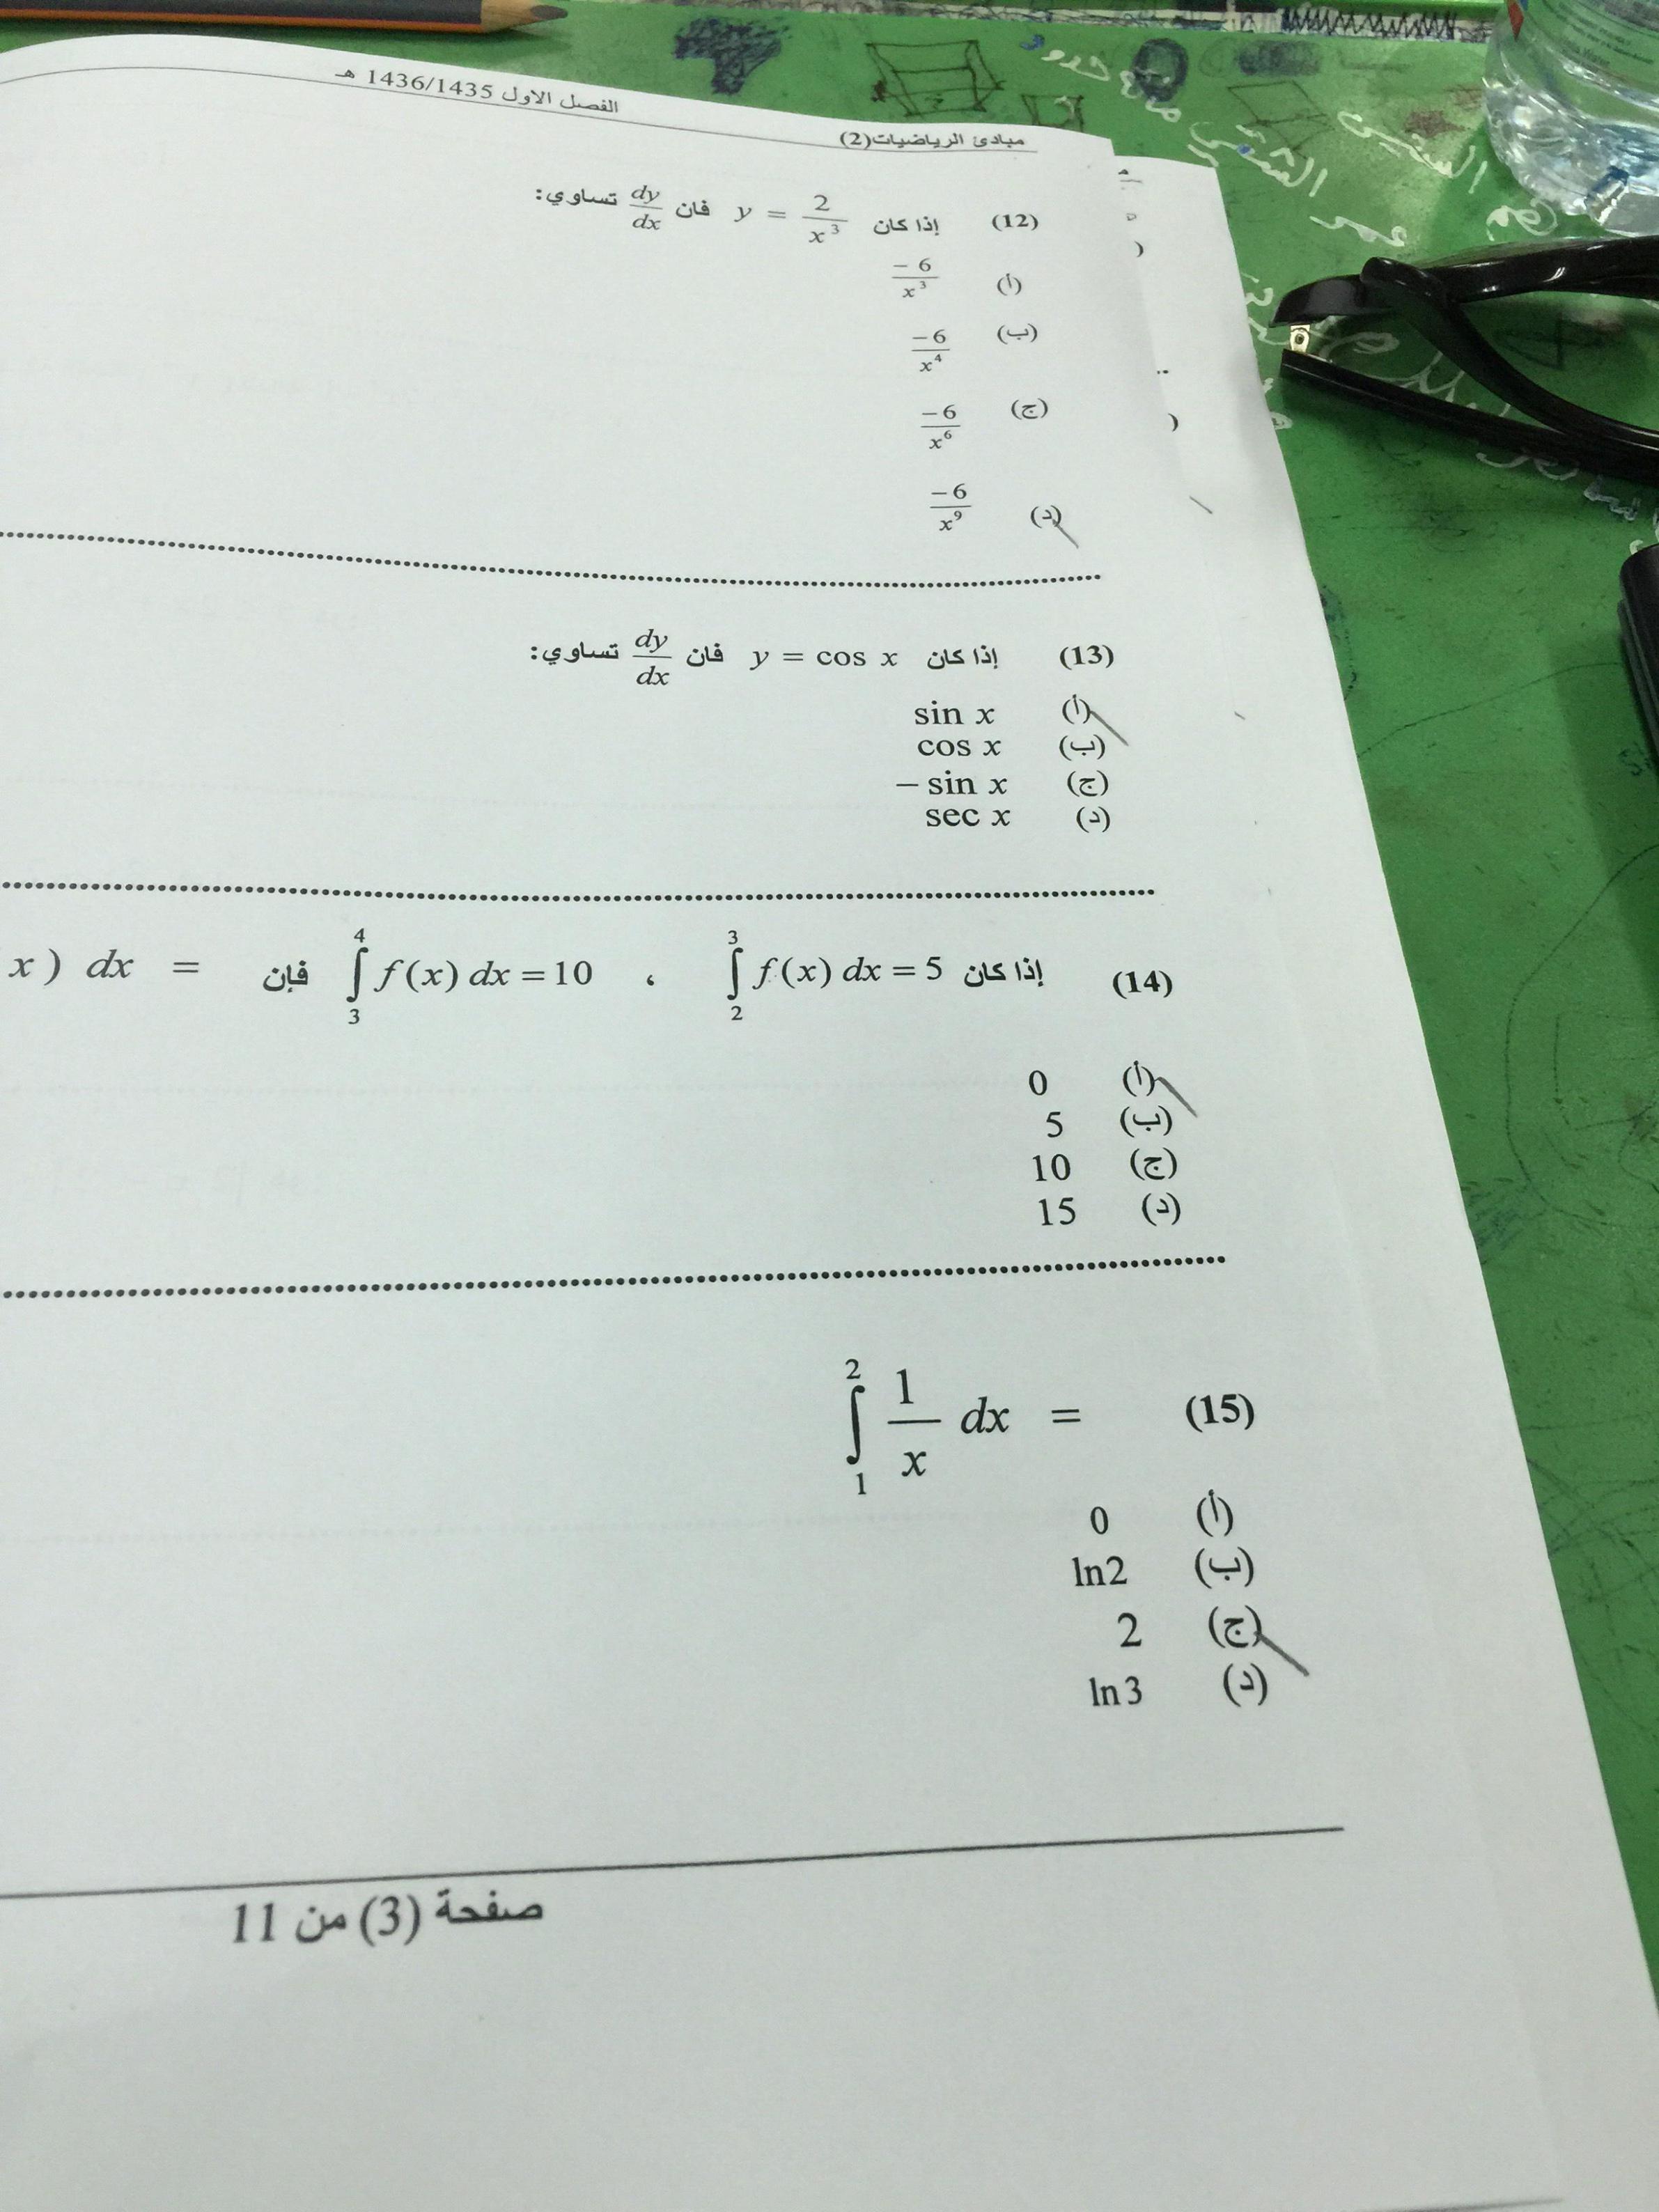 الفصل الاول 1436/1435 هـ
مبادئ الرياضيات(2)
(12) إذا كان y = 2/x³ فان dy/dx تساوي:
(أ) −6/x³
(ب) −6/x⁴
(ج) −6/x⁶
(د) −6/x⁹
(13) إذا كان y = cos x فان dy/dx تساوي:
(أ) sin x
(ب) cos x
(ج) − sin x
(د) sec x
(14) إذا كان ∫₂³ f(x) dx = 5 ، ∫₃⁴ f(x) dx = 10 فإن x) dx =
(أ) 0
(ب) 5
(ج) 10
(د) 15
(15) ∫₁² 1/x dx =
(أ) 0
(ب) ln2
(ج) 2
(د) ln3
صفحة (3) من 11